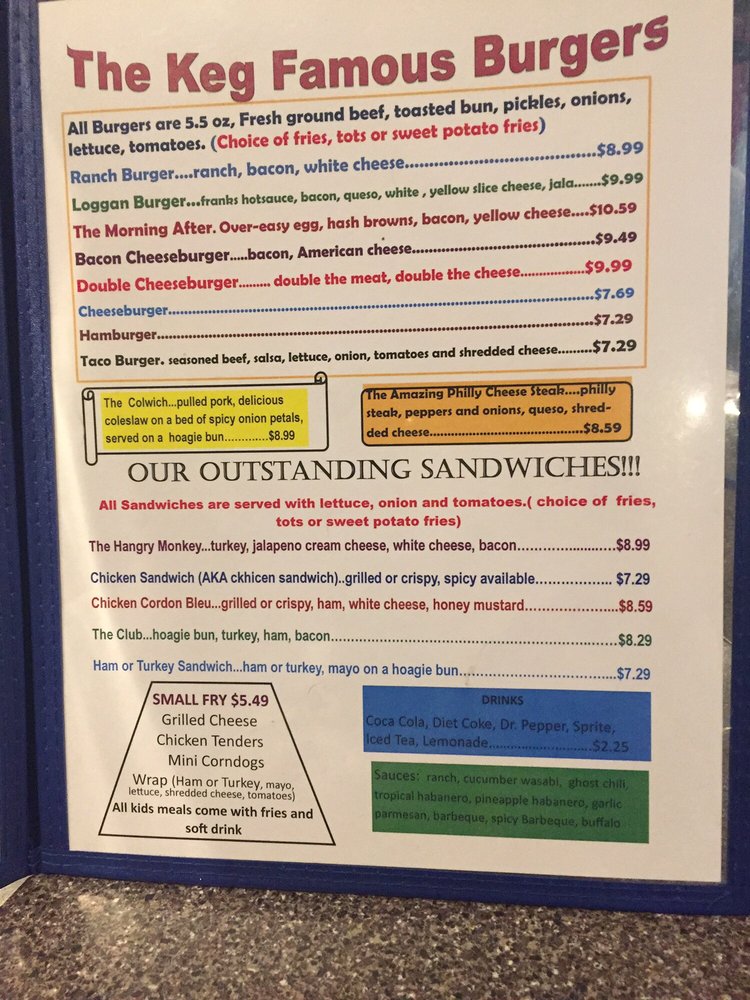 The Keg Famous Burgers
All Burgers are 5.5 oz, Fresh ground beef, toasted bun, pickles, onions,
lettuce, tomatoes. (Choice of fries, tots or sweet potato fries)
Ranch Burger....ranch, bacon, white cheese.............................................$8.99
Loggan Burger...franks hotsauce, bacon, queso, white , yellow slice cheese, jala.......$9.99
The Morning After. Over-easy egg, hash browns, bacon, yellow cheese....$10.59
Bacon Cheeseburger.....bacon, American cheese..........................................$9.49
Double Cheeseburger......... double the meat, double the cheese................$9.99
Cheeseburger...............................................................................................$7.69
Hamburger...................................................................................................$7.29
Taco Burger. seasoned beef, salsa, lettuce, onion, tomatoes and shredded cheese.........$7.29
The Colwich...pulled pork, delicious
coleslaw on a bed of spicy onion petals,
served on a hoagie bun.............$8.99
The Amazing Philly Cheese Steak....philly
steak, peppers and onions, queso, shred-
ded cheese..........................................$8.59
OUR OUTSTANDING SANDWICHES!!!
All Sandwiches are served with lettuce, onion and tomatoes.( choice of fries,
tots or sweet potato fries)
The Hangry Monkey...turkey, jalapeno cream cheese, white cheese, bacon.........................$8.99
Chicken Sandwich (AKA ckhicen sandwich)..grilled or crispy, spicy available.................. $7.29
Chicken Cordon Bleu...grilled or crispy, ham, white cheese, honey mustard.......................$8.59
The Club...hoagie bun, turkey, ham, bacon.....................................................................$8.29
Ham or Turkey Sandwich...ham or turkey, mayo on a hoagie bun.......................................$7.29
SMALL FRY $5.49
Grilled Cheese
Chicken Tenders
Mini Corndogs
Wrap (Ham or Turkey, mayo,
lettuce, shredded cheese, tomatoes)
All kids meals come with fries and
soft drink
DRINKS
Coca Cola, Diet Coke, Dr. Pepper, Sprite,
Iced Tea, Lemonade..........................$2.25
Sauces: ranch, cucumber wasabi, ghost chili,
tropical habanero, pineapple habanero, garlic
parmesan, barbeque, spicy Barbeque, buffalo